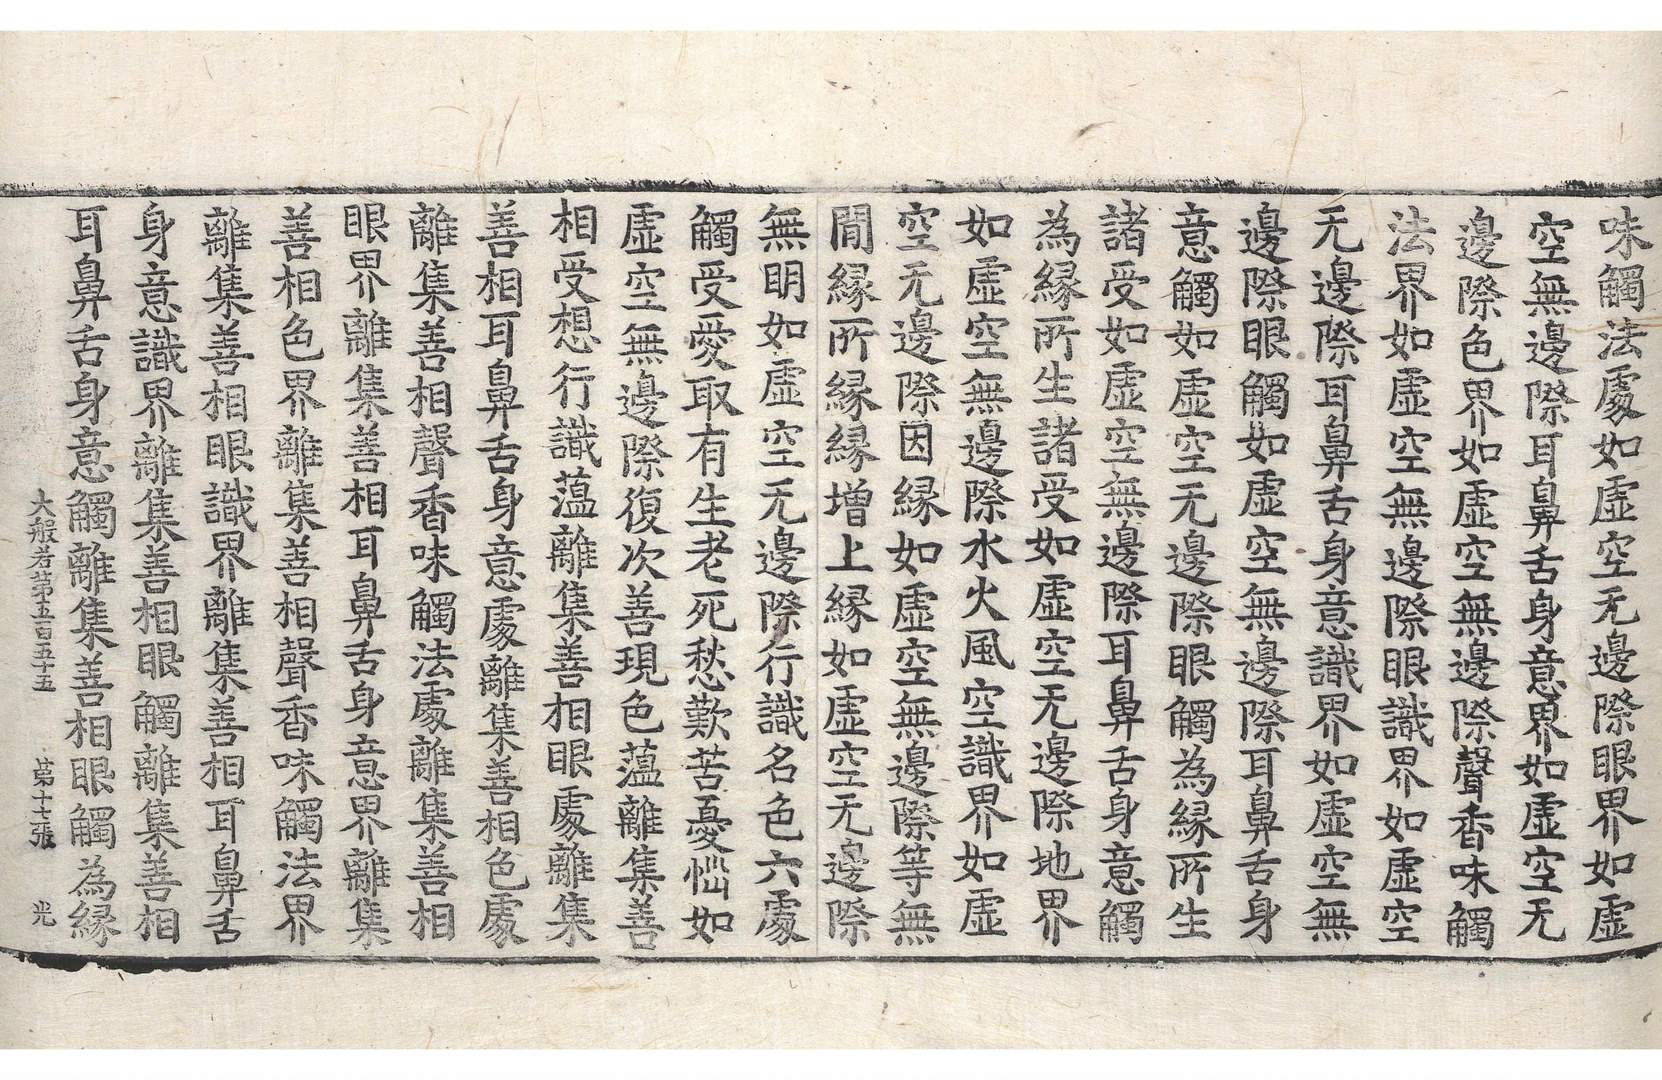 味觸法處如虛空无邊際眼界如虛
空無邊際耳鼻舌身意界如虛空无
邊際色界如虛空無邊際聲香味觸
法界如虛空無邊際眼識界如虛空
无邊際耳鼻舌身意識界如虛空無
邊際眼觸如虛空無邊際耳鼻舌身
意觸如虛空无邊際眼觸為縁所生
諸受如虛空無邊際耳鼻舌身意觸
為縁所生諸受如虛空无邊際地界
如虛空無邊際水火風空識界如虛
空无邊際因縁如虛空無邊際等無
閒縁所縁縁增上縁如虛空无邊際
無明如虛空无邊際行識名色六處
觸受愛取有生老死愁歎苦憂惱如
虛空無邊際復次善現色薀離集善
相受想行識薀離集善相眼處離集
善相耳鼻舌身意處離集善相色處
離集善相聲香味觸法處離集善相
眼界離集善相耳鼻舌身意界離集
善相色界離集善相聲香味觸法界
離集善相眼識界離集善相耳鼻舌
身意識界離集善相眼觸離集善相
耳鼻舌身意觸離集善相眼觸為縁
大般若第五百五十五 第十七張 光